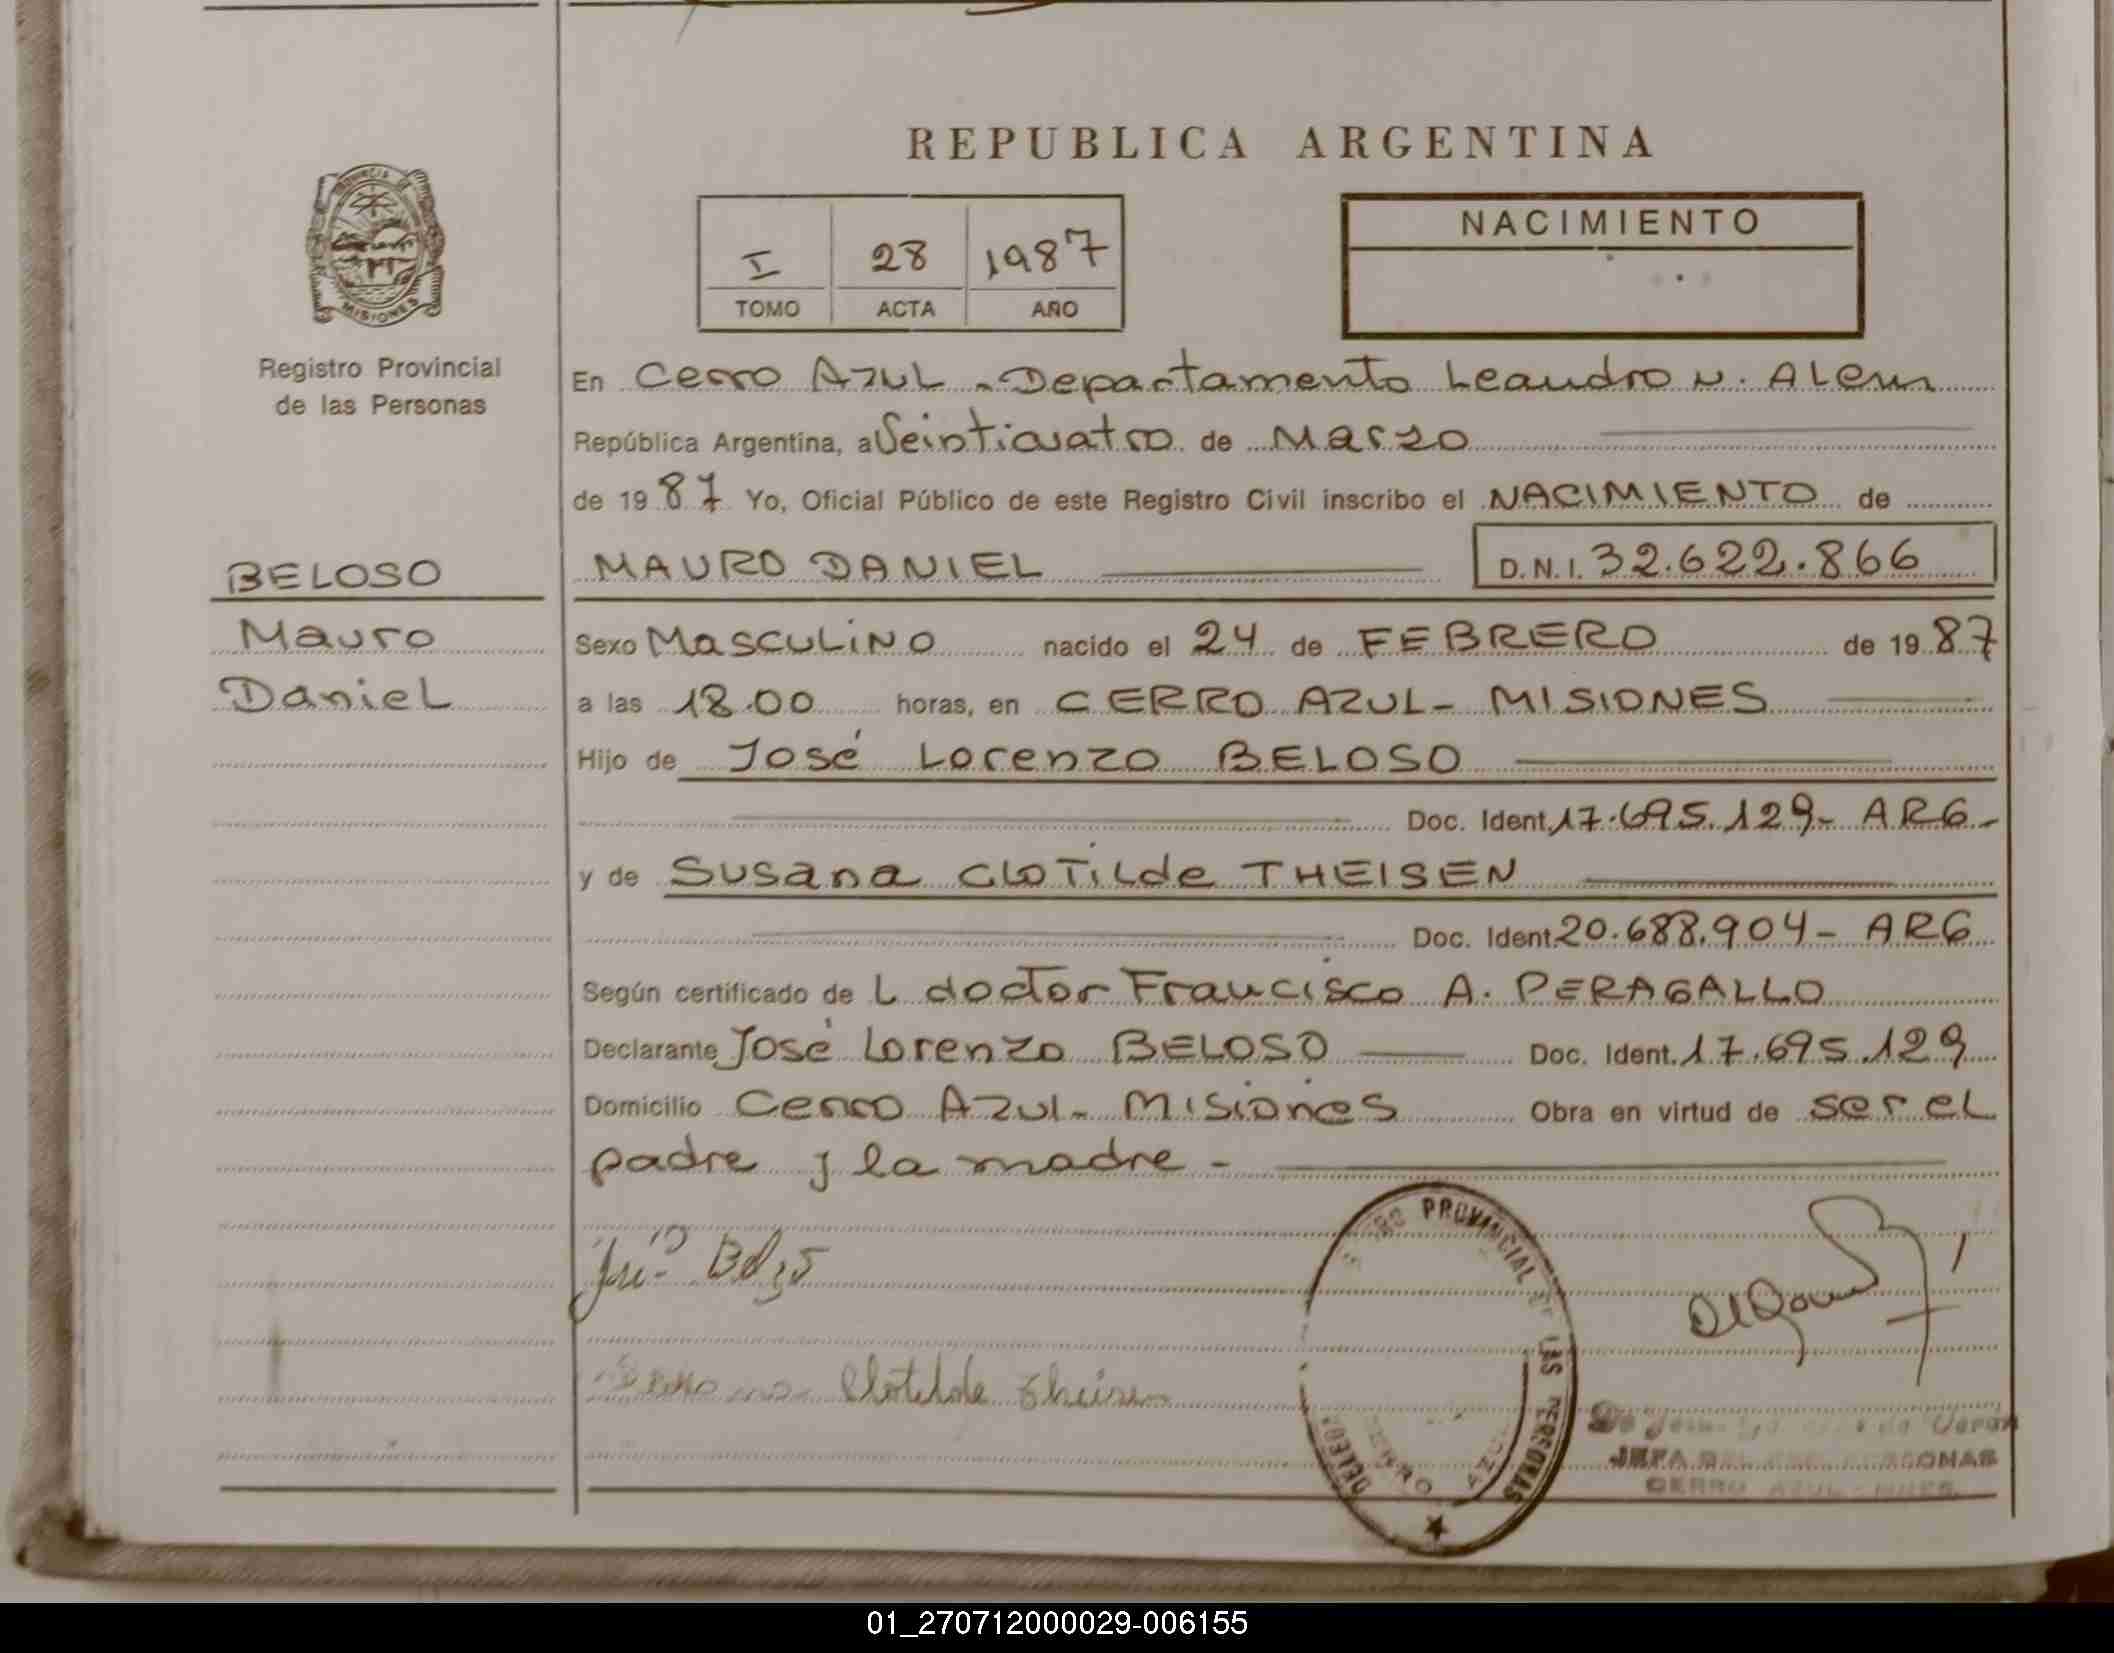 REPUBLICA ARGENTINA
PROVINCIA DE
MISIONES
Registro Provincial
de las Personas
I 28 1987
TOMO ACTA AÑO
NACIMIENTO
En Cerro AZUL - Departamento Leandro N. ALem
República Argentina, a Veinticuatro de Marzo
de 1987 Yo, Oficial Público de este Registro Civil inscribo el NACIMIENTO de
BELOSO
MAURO DANIEL D.N.I. 32.622.866
Mauro
Sexo MascuLiNO nacido el 24 de FEBRERO de 1987
DanieL
a las 18.00 horas, en CERRO AZUL - MISIONES
Hijo de José Lorenzo BELOSO
Doc. Ident. 17.695.129 - ARG -
y de Susana CLOTILde THEISEN
Doc. Ident. 20.688.904 - ARG
Según certificado de L doctor Francisco A. PERAGALLO
Declarante José Lorenzo BELOSO Doc. Ident. 17.695.129
Domicilio Cerro Azul - Misiones Obra en virtud de ser el
padre y la madre -
PROVINCIAL DE LAS PERSONAS
CERRO AZUL
Clotilde Theisen
JEFA
PERSONAS
CERRO AZUL - MNES.
01_270712000029-006155